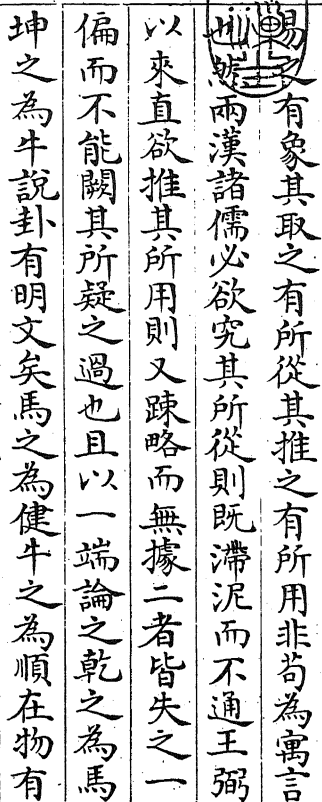 易之有象其取之有所從其推之有所用非苟為寓言
也然兩漢諸儒必欲究其所從則既滯泥而不通王弼
以來直欲推其所用則又踈略而無據二者皆失之一
偏而不能闕其所疑之過也且以一端論之乾之為馬
坤之為牛說卦有明文矣馬之為健牛之為順在物有